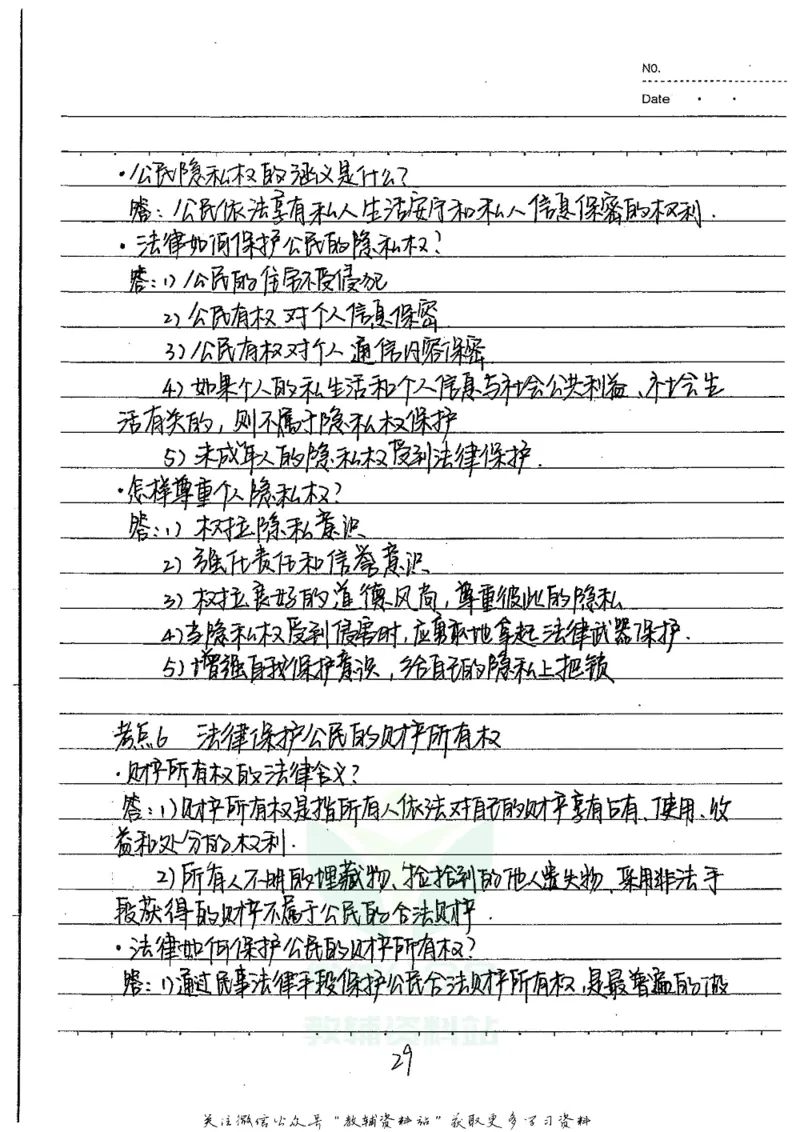 NO.
Date
·公民隐私权的涵义是什么?
答:公民依法享有私人生活安宁和私人信息保密的权利.
·法律如何保护公民的隐私权?
答:1)公民的住宅不受侵犯
2)公民有权对个人信息保密
3)公民有权对个人通信内容保密
4)如果个人的私生活和个人信息与社会公共利益、社会生
活有关的,则不属于隐私权保护
5)未成年人的隐私权受到法律保护.
·怎样尊重个人隐私权?
答:1)树立隐私意识
2)强化责任和信誉意识
3)树立良好的道德风尚,尊重彼此的隐私
4)当隐私权受到侵害时,应勇敢地拿起法律武器保护.
5)增强自我保护意识,给自己的隐私上把锁
考点6 法律保护公民的财产所有权
·财产所有权的法律含义?
答:1)财产所有权是指所有人依法对自己的财产享有占有、使用、收
益和处分的权利.
2)所有人不明的埋藏物、捡拾到的他人遗失物、采用非法手
段获得的财产不属于公民的合法财产.
·法律如何保护公民的财产所有权?
答:1)通过民事法律手段保护公民合法财产所有权,是最普遍的做
教辅资料站
29
关注微信公众号"教辅资料站"获取更多学习资料